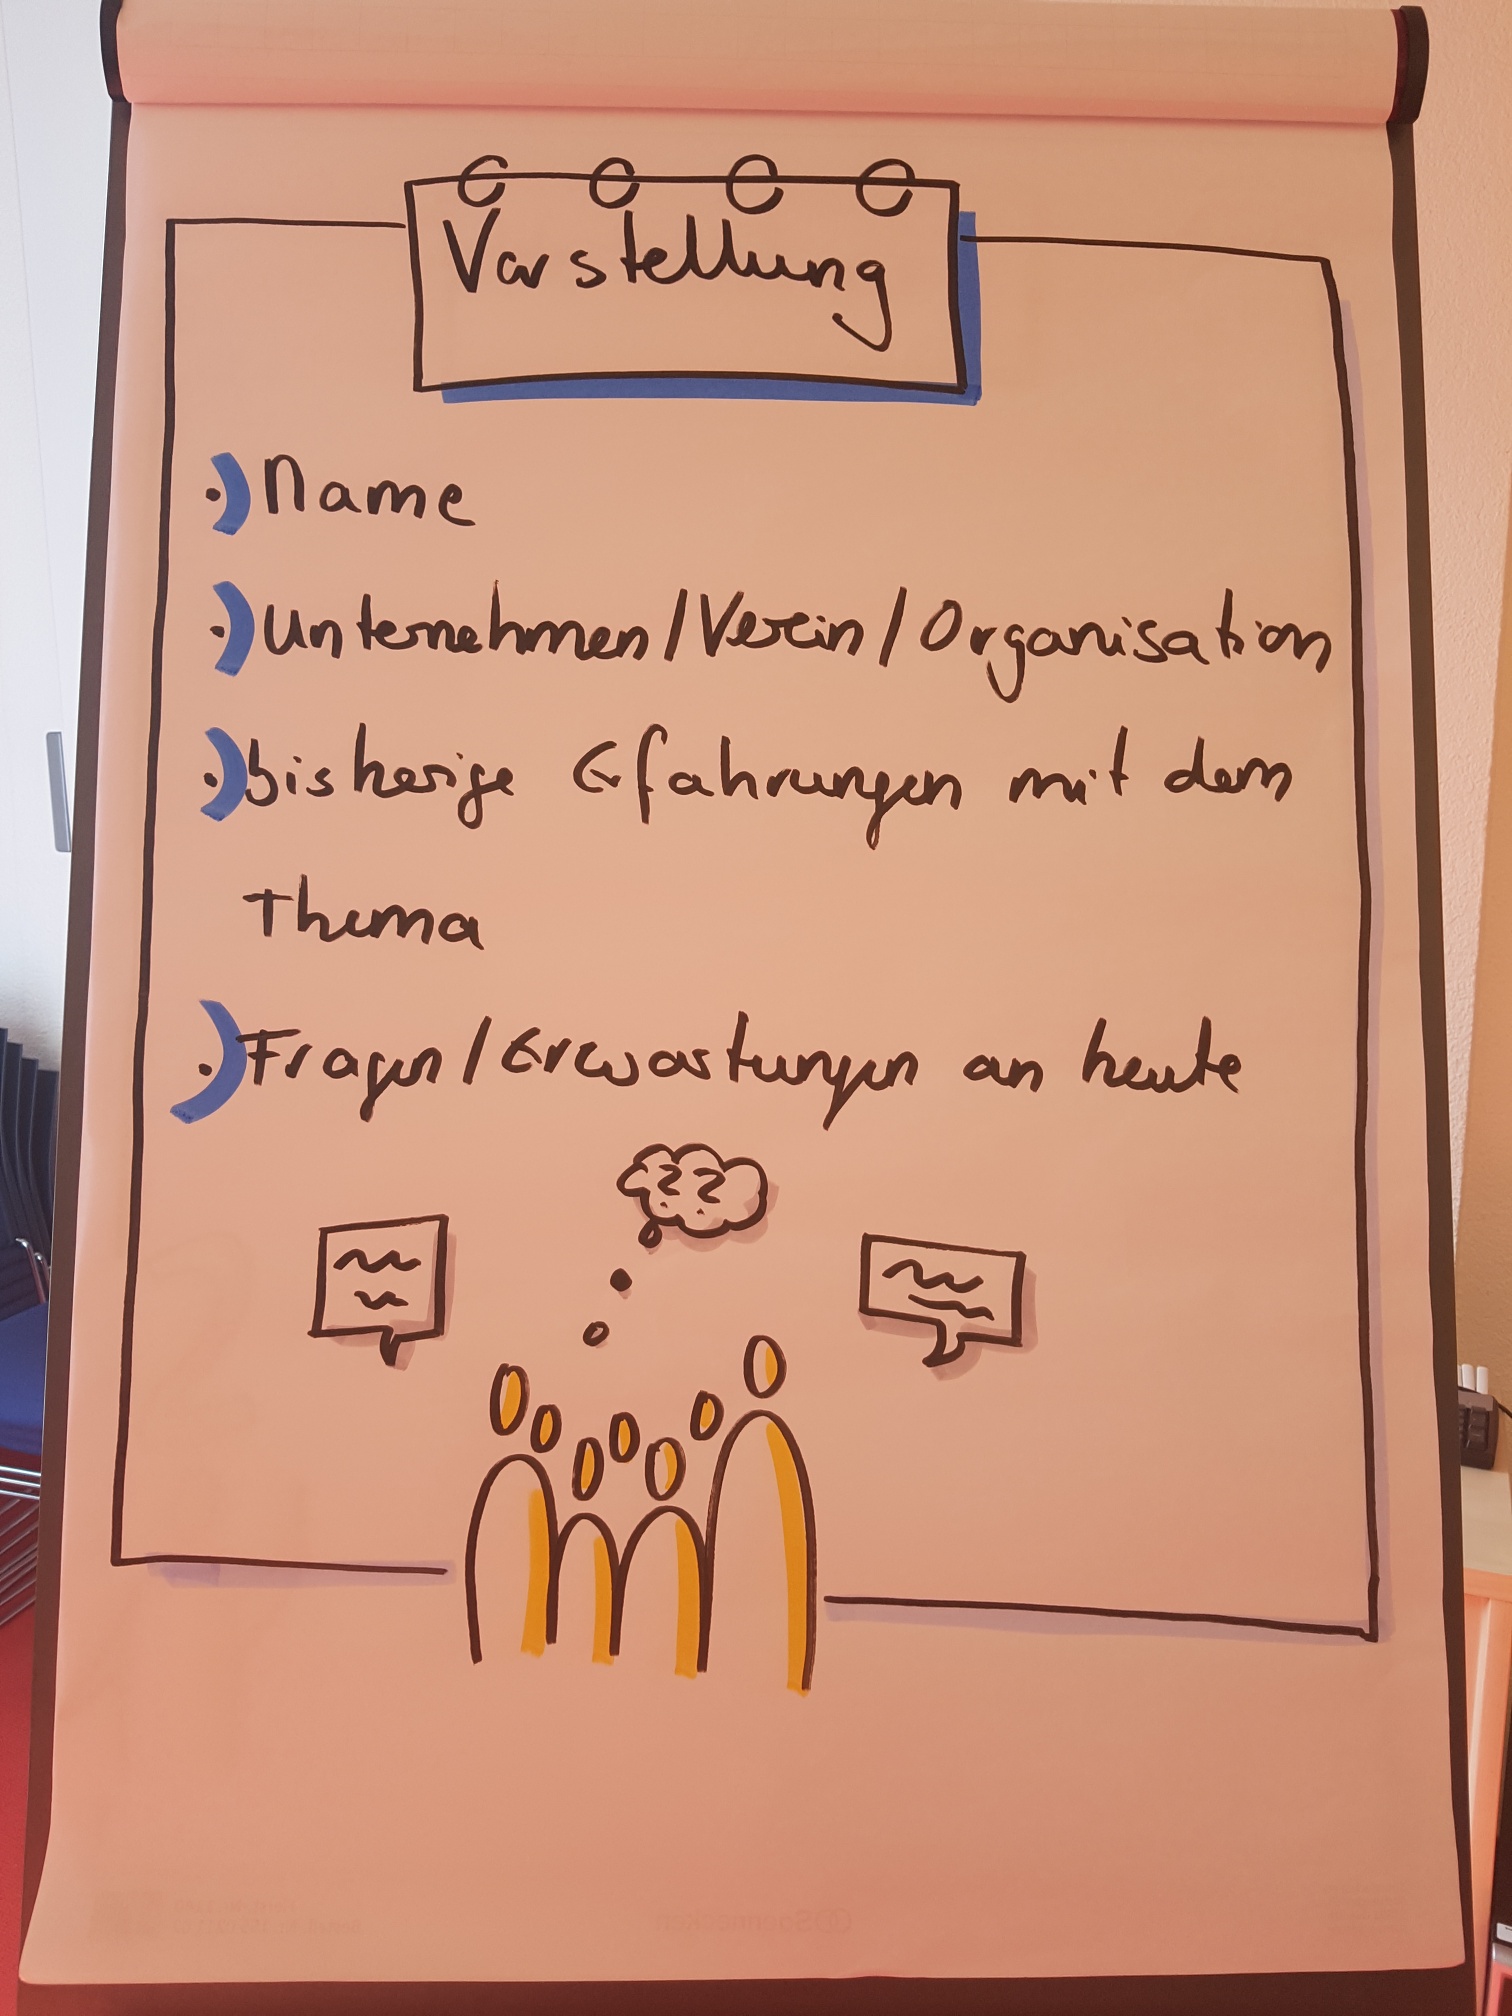 Vorstellung
.) Name
.) Unternehmen/Verein/Organisation
.) bisherige Erfahrungen mit dem
Thema
.) Fragen/Erwartungen an heute
??